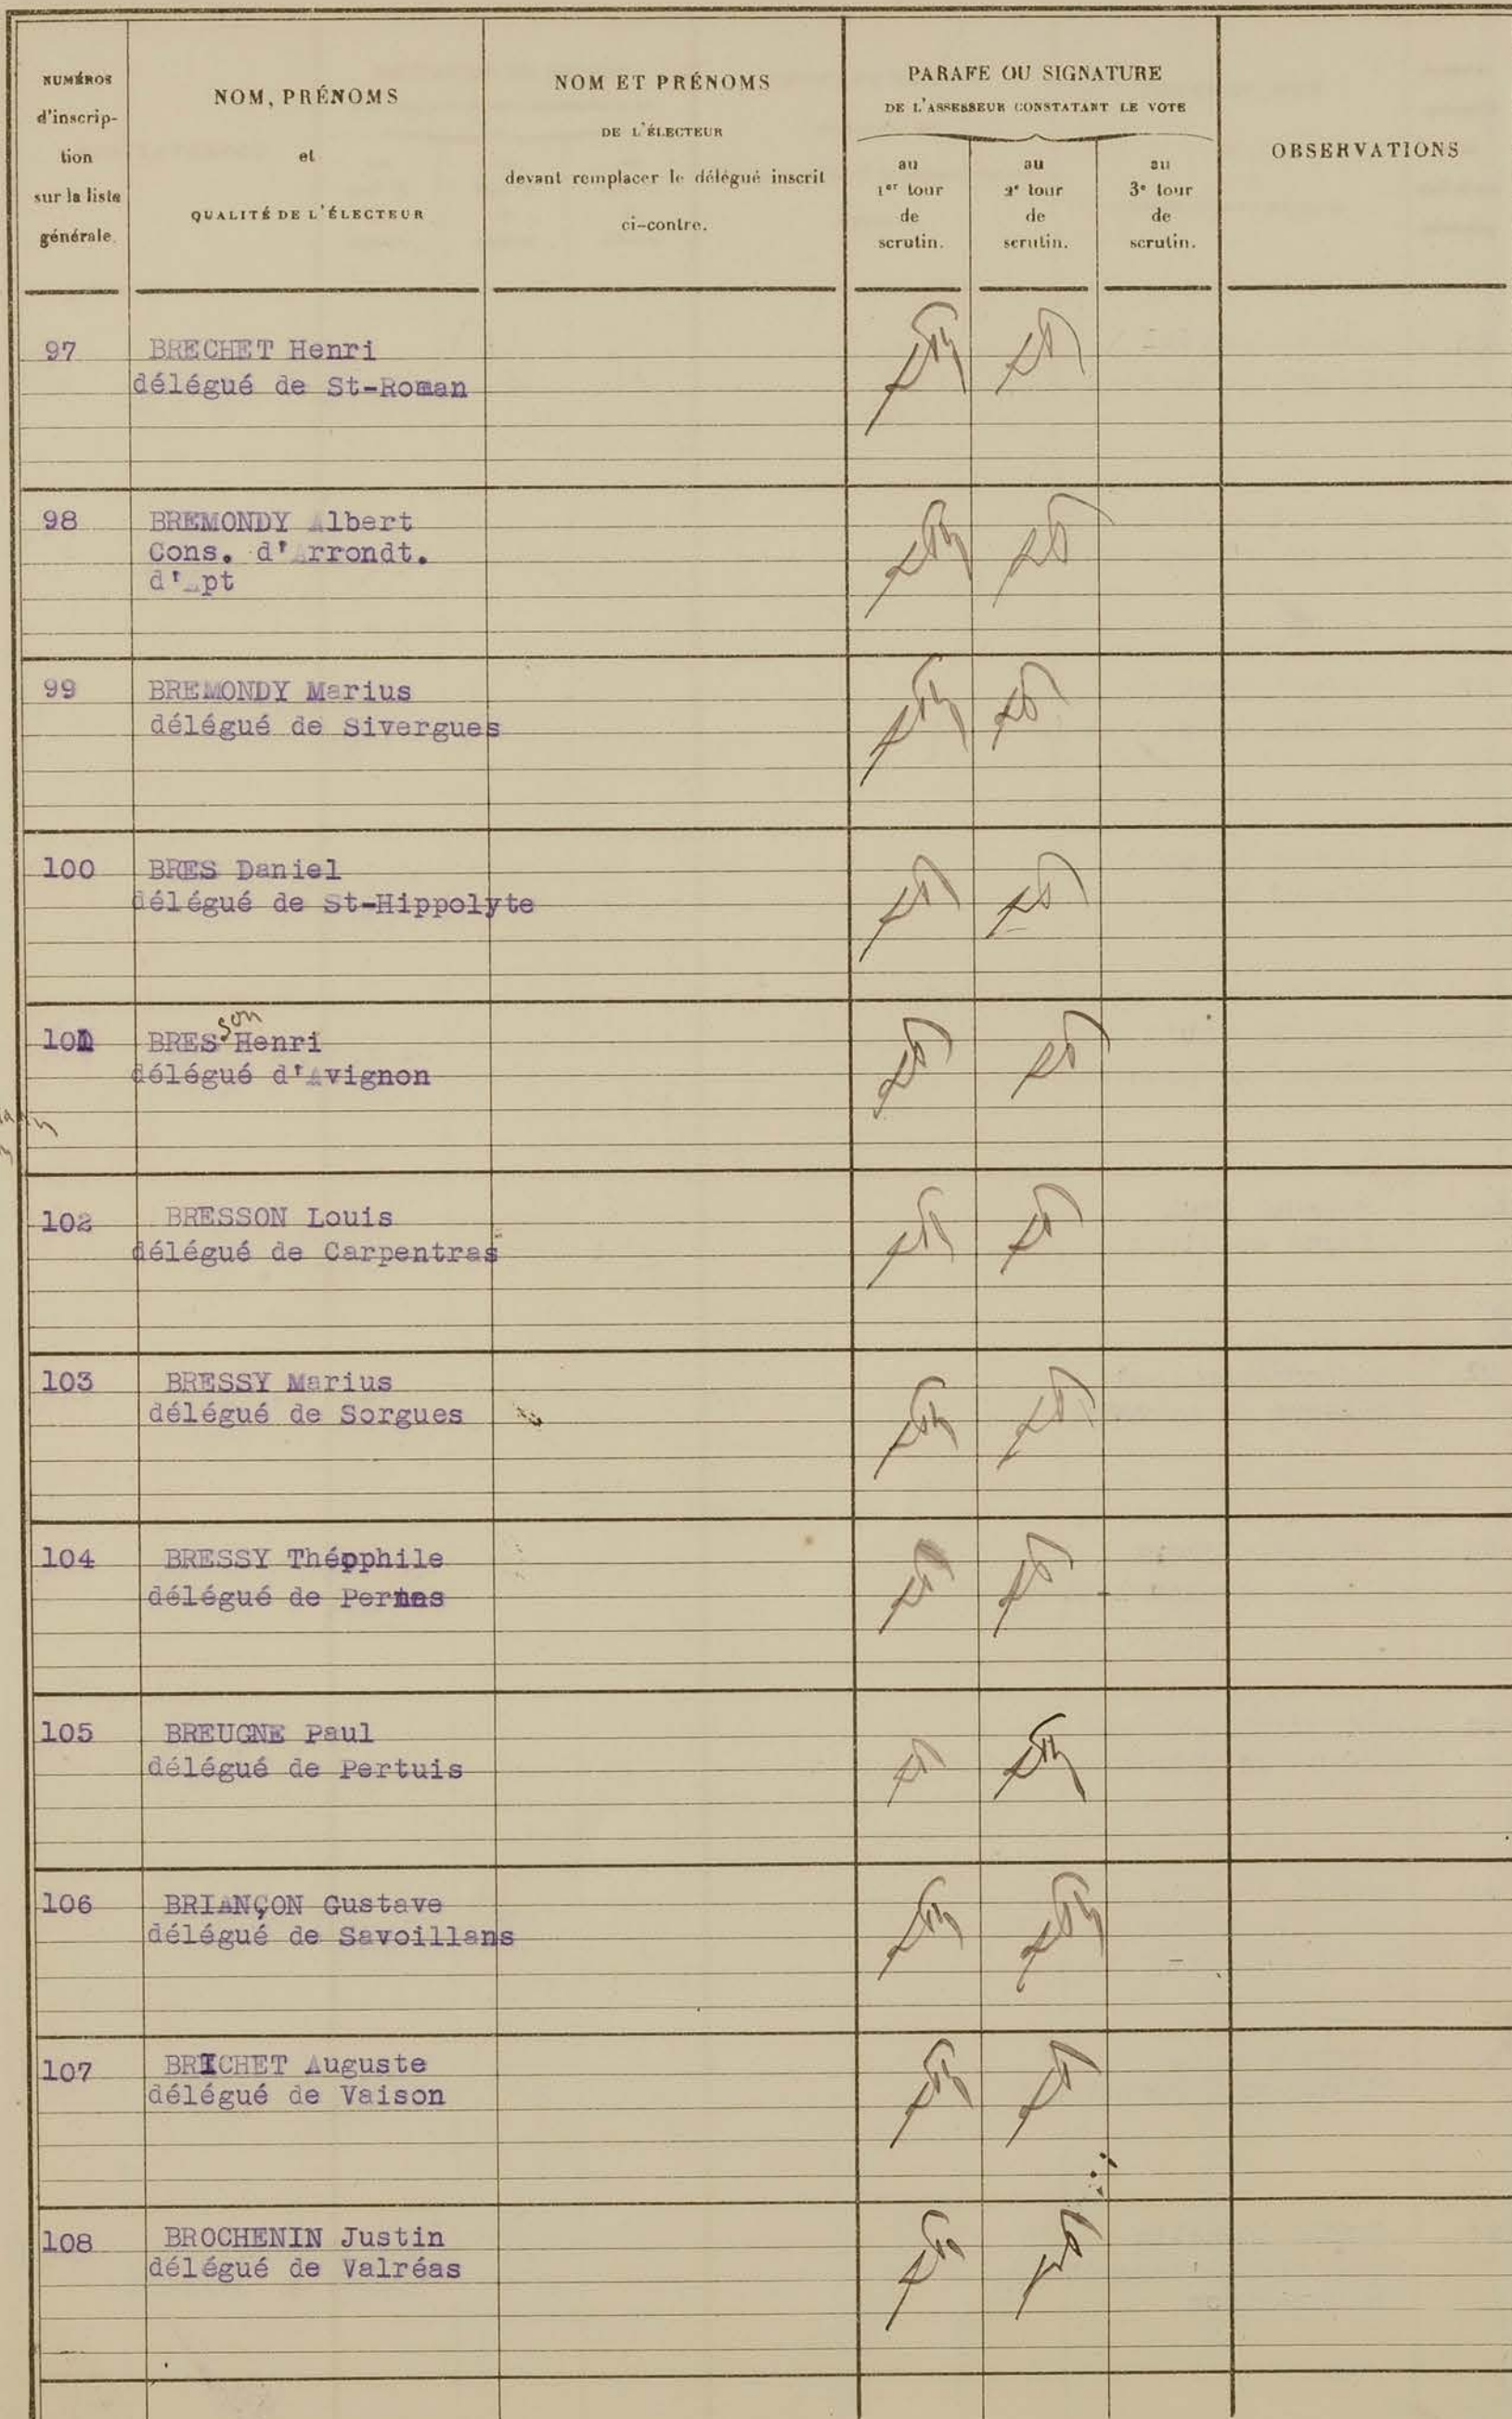 NUMÉROS
d'inscrip-
tion
sur la liste
générale.
NOM, PRÉNOMS
et
QUALITÉ DE L'ÉLECTEUR
NOM ET PRÉNOMS
DE L'ÉLECTEUR
devant remplacer le délégué inscrit
ci-contre.
PARAFE OU SIGNATURE
DE L'ASSESSEUR CONSTATANT LE VOTE
au
1er tour
de
scrutin.
au
2e tour
de
scrutin.
au
3e tour
de
scrutin.
OBSERVATIONS
97 BRECHET Henri
délégué de St-Roman
98 BREMONDY Albert
Cons. d'Arrondt.
d'Apt
99 BREMONDY Marius
délégué de Sivergues
100 BRES Daniel
délégué de St-Hippolyte
101 BRESson Henri
délégué d'Avignon
102 BRESSON Louis
délégué de Carpentras
103 BRESSY Marius
délégué de Sorgues
104 BRESSY Théophile
délégué de Pernes
105 BREUGNE Paul
délégué de Pertuis
106 BRIANÇON Gustave
délégué de Savoillans
107 BRICHET Auguste
délégué de Vaison
108 BROCHENIN Justin
délégué de Valréas